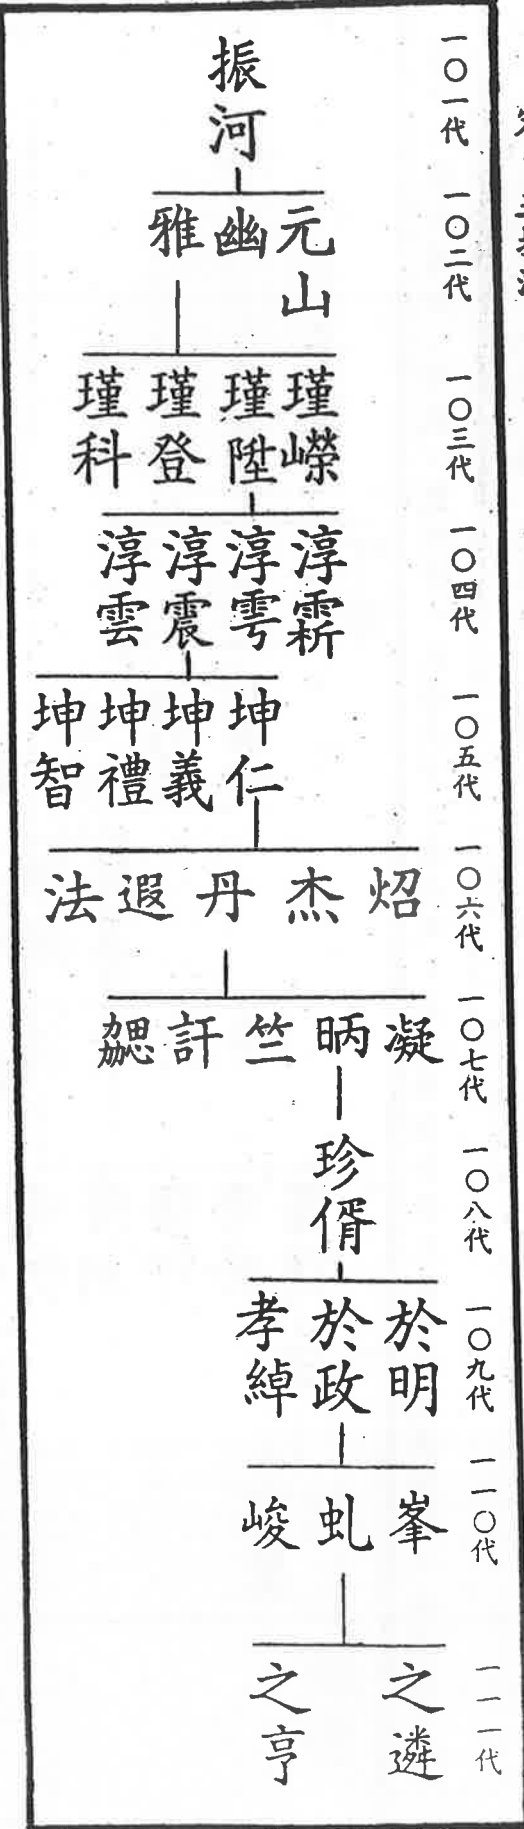 一〇一代
振河
一〇二代
元山 幽 雅
一〇三代
瑾嶸 瑾陞 瑾登 瑾科
一〇四代
淳霦 淳雩 淳震 淳雲
一〇五代
坤仁 坤義 坤禮 坤智
一〇六代
炤 杰 丹 遐 法
一〇七代
凝 昞 竺 訐 勰
一〇八代
珍偦
一〇九代
於明 於政 孝綽
一一〇代
峯 虬 峻
一一一代
之遴 之亨